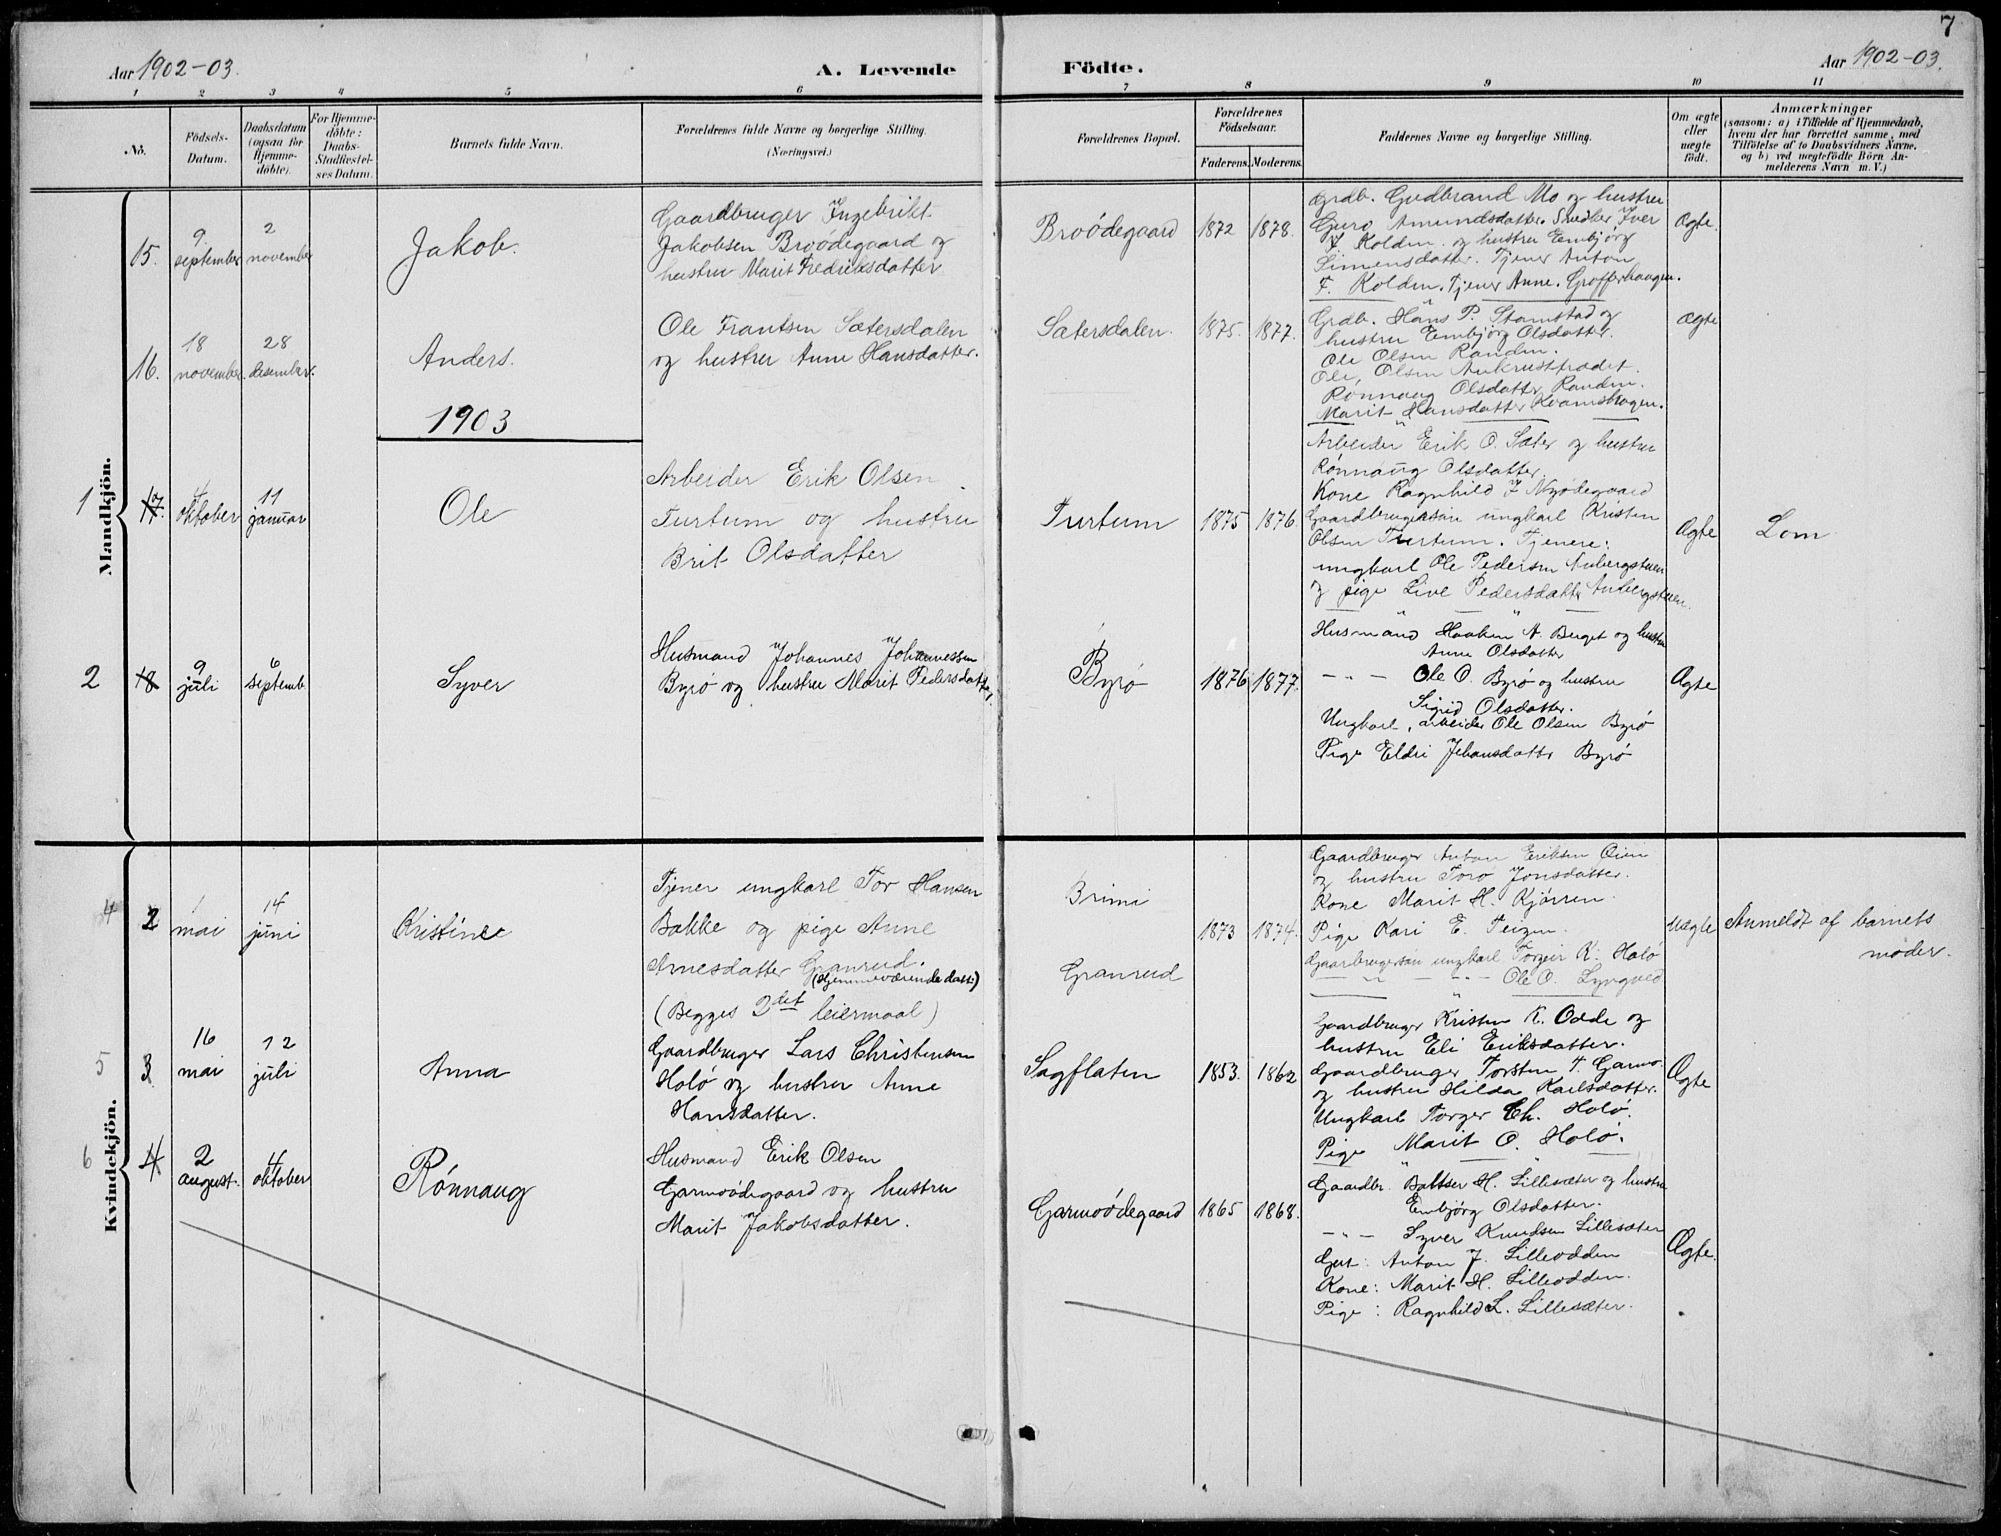 7
Aar 1902-03.
A. Levende Födte.
Aar 1902-03.
1 2 3 4 5 6 7 8 9 10 11
No.
Födsels-
Datum.
Daabsdatum
(ogsaa for
Hjemme-
döbte).
For Hjemme-
döbte:
Daabs-
Stadfæstel-
ses Datum.
Barnets fulde Navn.
Forældrenes fulde Navne og borgerlige Stilling.
(Næringsvei.)
Forældrenes Bopæl.
Forældrenes
Födselsaar.
Faderens. Moderens.
Faddernes Navne og borgerlige Stilling.
Om ægte
eller
uægte
födt.
Anmærkninger
(saasom: a) i Tilfælde af Hjemmedaab,
hvem der har forrettet samme, med
Tilföielse af to Daabsvidners Navne,
og b) ved uægtefödte Börn An-
melderens Navn m. V.)
Mandkjön.
15.
9
september
2
november
Jakob.
Gaardbruger Ingebrikt
Jakobsen Broödegaard og
hustru Marit Fredriksdatter
Broödegaard
1872 1878.
Grdb. Gudbrand Mo og hustru
Guro Amundsdatter. Snedker Iver
F. Kolden og hustru Embjørg
Simensdatter. Tjener Anton
F. Kolden. Tjener Anne Grofferhaugen.
Ægte.
16.
18
november.
28
desember.
Anders.
Ole Frantsen Sætersdalen
og hustru Anne Hansdatter.
Sætersdalen.
1875. 1877.
Grdb. Hans P. Stamstad og
hustru Embjørg Olsdatter.
Ole Olsen Randen.
Ole Olsen Aukrusttrædet.
Rønnaug Olsdatter Randen.
Marit Hansdatter Kvamshagen.
ægte
1903
1 17.
4
oktober
11
januar
Ole
Arbeider Erik Olsen
Turtum og hustru
Brit Olsdatter
Turtum
1875 1876.
Arbeider Erik O. Sæter og hustru
Rønnaug Olsdatter.
Kone Ragnhild J. Nyødegaard
Gaardbrugersøn ungkarl Kristen
Olsen Turtum. Tjenere:
ungkarl Ole Pedersen Aubergstuen
og pige Live Pedersdatter Aubergstuen.
Ægte
Lom
2 18
9
juli
6
septemb
Syver
Husmand Johannes Johannessen
Byrø og hustru Marit Pedersdatter.
Byrø
1876 1877.
Husmand Haaken A. Berget og hustru
Anne Olsdatter
— " — Ole O. Byrø og hustru
Sigrid Olsdatter.
Ungkarl, arbeider Ole Olsen Byrø
Pige Eldri Johansdatter Byrø
Ægte
Kvindekjön.
4 2
1
mai
14
juni
Kristine
Tjener ungkarl Tor Hansen
Bakke og pige Anne
Arnesdatter Granrud.
(Hjemmeværende datt.)
(Begges 2det leiermaal)
Brimi
Granrud
1873 1874.
Gaardbruger Anton Eriksen Øien
og hustru Toro Jonsdatter.
Kone Marit H. Kjørren.
Pige Kari E. Teigen.
Gaardbrugersøn ungkarl Torgeir K. Holø
— " — — " — Ole O. Lyngved
Uægte
Anmeldt af barnets
moder.
5 3
16
mai
12
juli
Anna
Gaardbruger Lars Christensen
Holø og hustru Anne
Hansdatter.
Sagflaten
1853. 1862
Gaardbruger Kristen K. Odde og
hustru Eli Eriksdatter.
Gaardbruger Torsten T. Garmo
og hustru Hilda Karlsdatter.
Ungkarl Torger Ch. Holø.
Pige Marit O. Holø.
Ægte
6 4
2
august.
4
oktober
Rønnaug
Husmand Erik Olsen
Garmoödegaard og hustru
Marit Jakobsdatter.
Garmoödegaard
1865 1868.
Gaardbr. Baltser H. Lillesæter og hustru
Embjørg Olsdatter.
— " — Syver Knudsen Lillesæter
Gut: Anton J. Lilleødden
Kone: Marit H. Lilleødden.
Pige: Ragnhild L. Lillesæter.
Ægte.